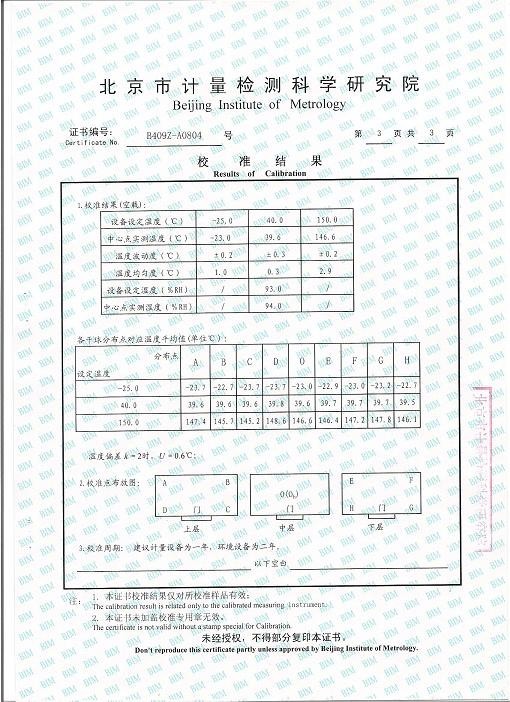 北京市计量检测科学研究院
Beijing Institute of Metrology
证书编号: B409Z-A0804 号 第 3 页 共 3 页
Certificate No
校 准 结 果
Results of Calibration
1.校准结果(空载):
设备设定温度(℃) -25.0 40.0 150.0
中心点实测温度(℃) -23.0 39.6 146.6
温度波动度(℃) ±0.2 ±0.3 ±0.2
温度均匀度(℃) 1.0 0.3 2.9
设备设定湿度(%RH) / 93.0 /
中心点实测湿度(%RH) / 94.0 /
各干球分布点对应温度平均值(单位℃):
分布点 A B C D O E F G H
设定温度
-25.0 -23.7 -22.7 -23.7 -23.7 -23.0 -22.9 -23.0 -23.2 -22.7
40.0 39.6 39.6 39.6 39.8 39.6 39.7 39.7 39.7 39.5
150.0 147.4 145.7 145.2 148.6 146.6 146.4 147.2 147.8 146.1
温度偏差 k=2时, U=0.6℃;
2.校准点布放图:
A B
D 门 C
上层
O(O₀)
门
中层
E F
H 门 G
下层
3.校准周期: 建议计量设备为一年, 环境设备为二年。
以下空白
注: 1. 本证书校准结果仅对所校准样品有效;
The calibration result is related only to the calibrated measuring instrument.
2. 本证书未加盖校准专用章无效。
The certificate is not valid without a stamp special for Calibration.
未经授权,不得部分复印本证书。
Don't reproduce this certificate partly unless approved by Beijing Institute of Metrology.